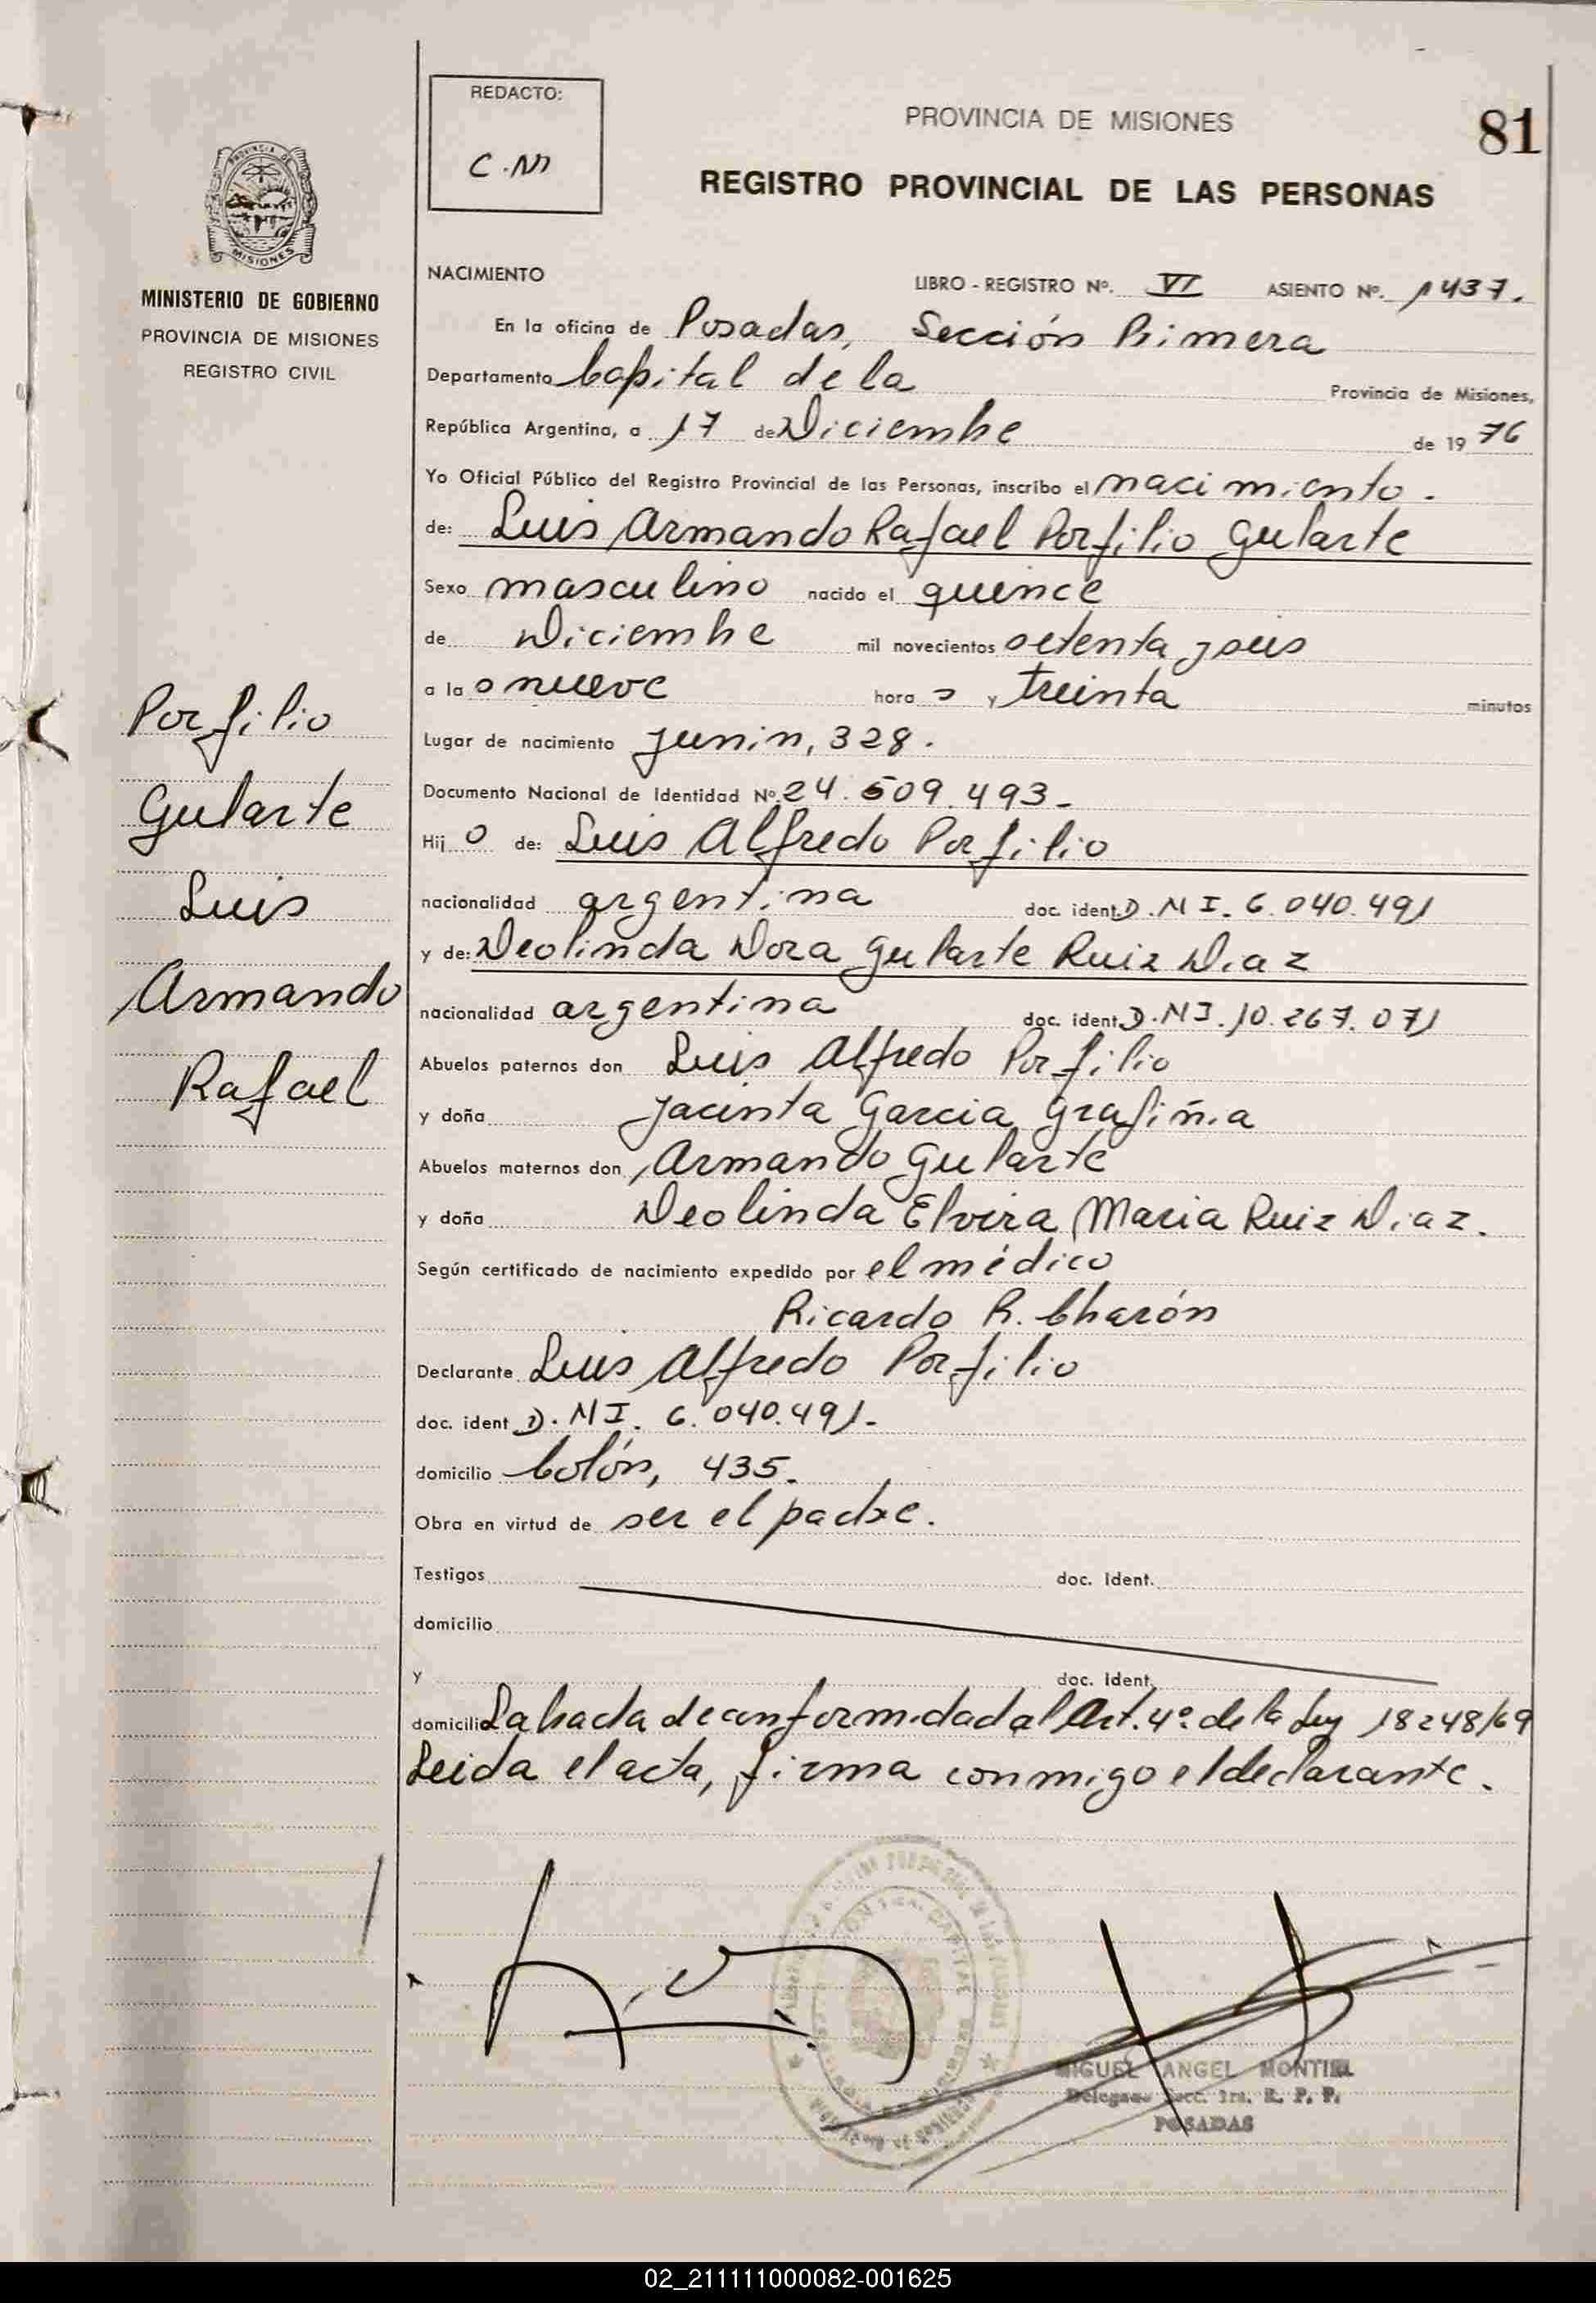 REDACTO:
C.M
PROVINCIA DE MISIONES
81
REGISTRO PROVINCIAL DE LAS PERSONAS
PROVINCIA DE
MISIONES
MINISTERIO DE GOBIERNO
PROVINCIA DE MISIONES
REGISTRO CIVIL
NACIMIENTO
LIBRO - REGISTRO Nº. VI ASIENTO Nº. 1437.
En la oficina de Posadas, Sección Primera
Departamento Capital de la Provincia de Misiones,
República Argentina, a 17 de Diciembre de 1976
Yo Oficial Público del Registro Provincial de las Personas, inscribo el nacimiento.
de: Luis Armando Rafael Porfilio Gularte
Sexo masculino nacido el quince
de Diciembre mil novecientos setenta y seis
a las nueve horas y treinta minutos
Lugar de nacimiento Junin, 328.
Documento Nacional de Identidad Nº 24.509.493-
Hijo de: Luis Alfredo Porfilio
nacionalidad argentina doc. ident. D.N I. 6.040.491
y de: Deolinda Dora Gularte Ruiz Diaz
nacionalidad argentina doc. ident. D.N I. 10.267.071
Abuelos paternos don Luis Alfredo Porfilio
y doña Jacinta Garcia Grafiñia
Abuelos maternos don Armando Gularte
y doña Deolinda Elvira Maria Ruiz Diaz.
Según certificado de nacimiento expedido por el médico
Ricardo R. Charón
Declarante Luis Alfredo Porfilio
doc. ident D.N I. 6.040.491.-
domicilio Colón, 435.
Obra en virtud de ser el padre.
Testigos doc. Ident.
domicilio
y doc. Ident.
domicilio Labrada de conformidad al Art. 4º de la Ley 18248/69
Leida el acta, firma conmigo el declarante.
Porfilio
Gularte
Luis
Armando
Rafael
MIGUEL ANGEL MONTIEL
Delegado Secc. 1ra. R. P. P.
POSADAS
02_211111000082-001625